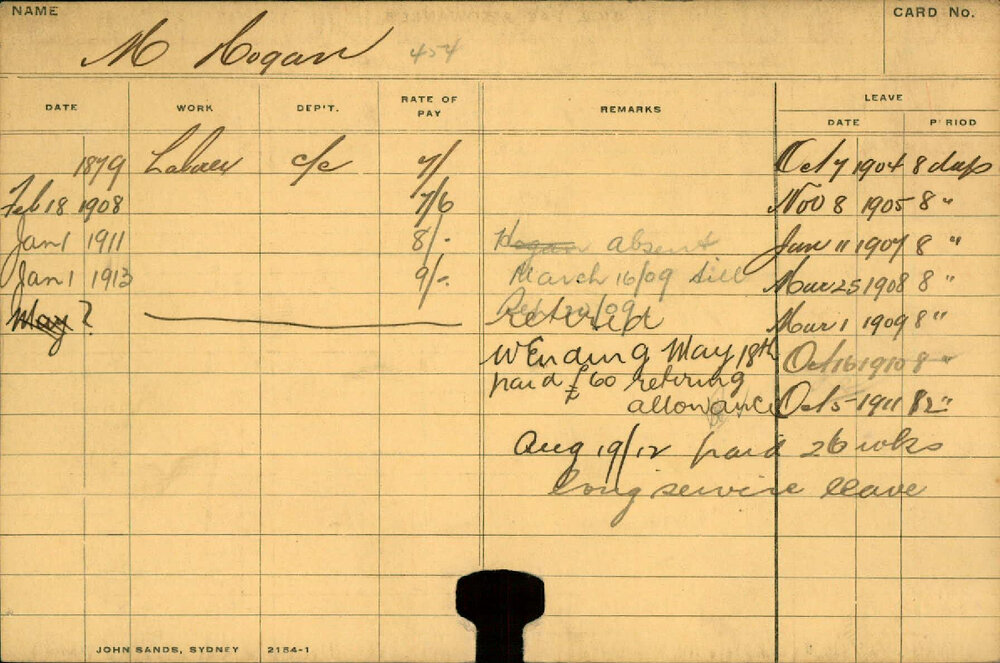 NAME
CARD No.
M Hogan 454
DATE WORK DEP'T. RATE OF PAY REMARKS LEAVE
DATE PERIOD
1879 Labourer c/c 7/ Oct 7 1904 8 days
Feb 18 1908 7/6 Nov 8 1905 8 "
Jan 1 1911 8/- Hogan absent Jan 11 1907 8 "
Jan 1 1913 9/- March 16/09 till Mar 25 1908 8 "
May ? Sep 20/09 Mar 1 1909 8 "
retired
W Ending May 18th Oct 16 1910 8 "
paid £60 retiring
allowance Oct 5 1911 82 "
Aug 19/12 paid 26 wks
long service leave
JOHN SANDS, SYDNEY 2154-1